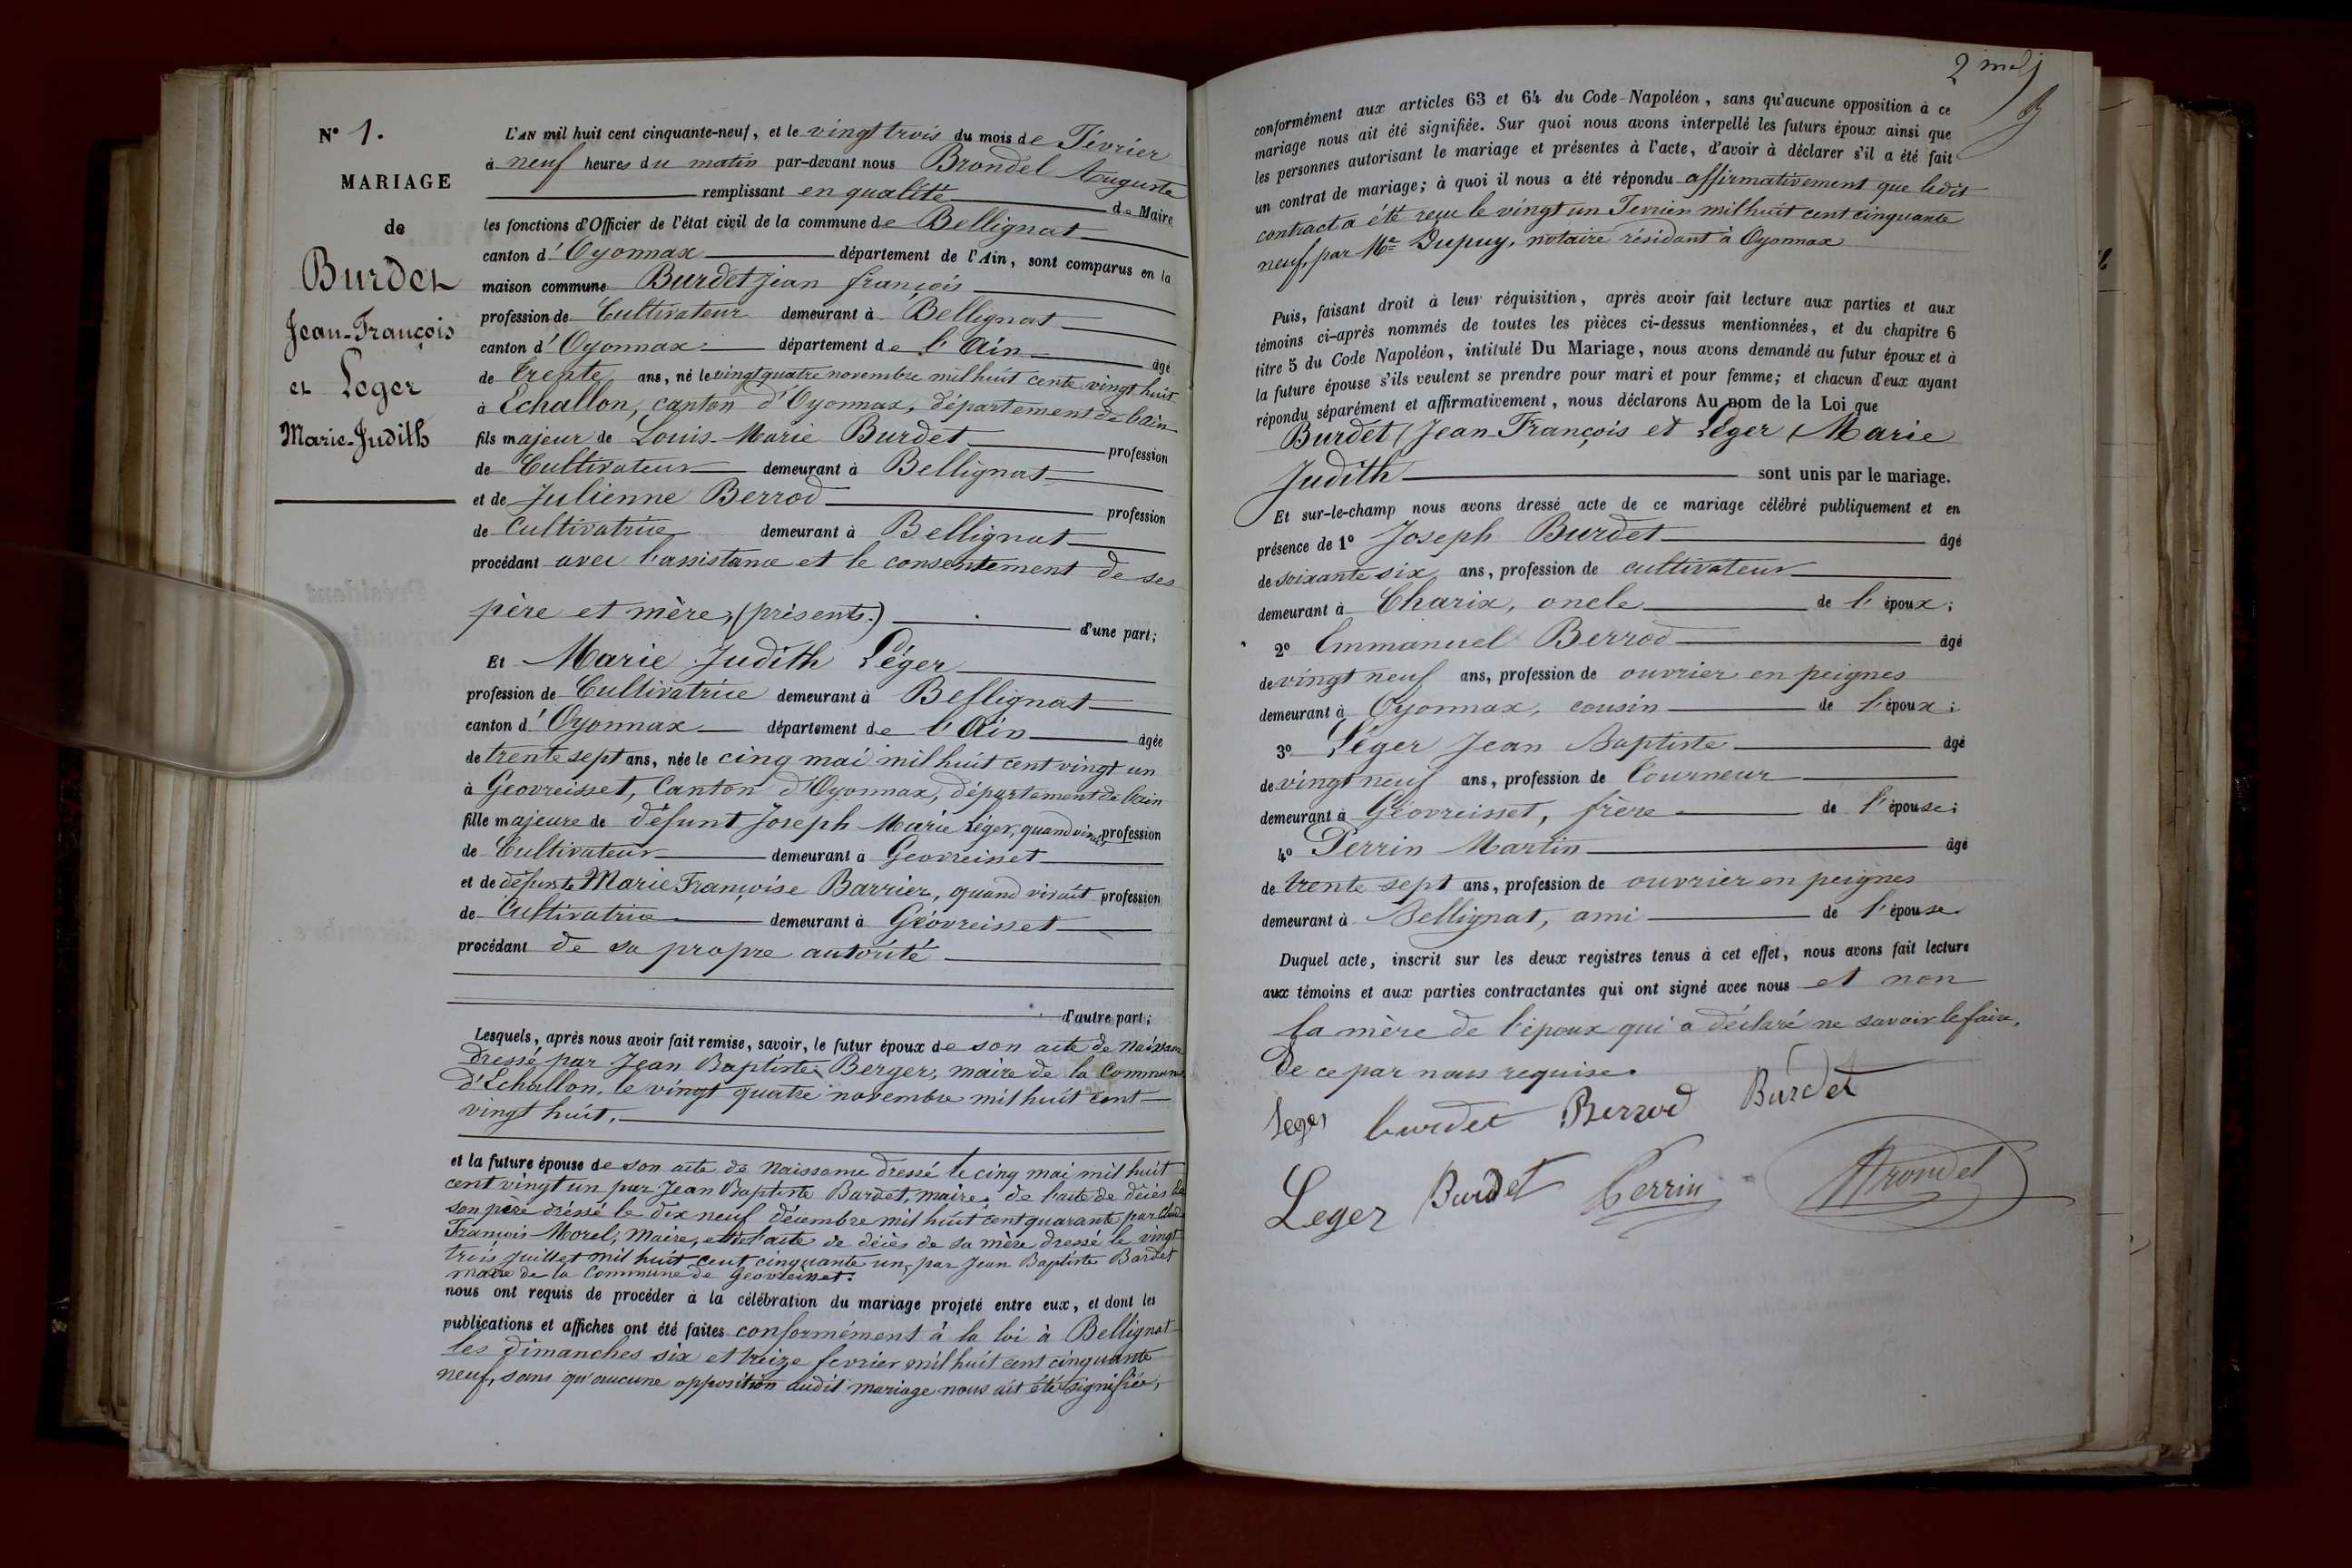 N° 1.
MARIAGE
de
Burdet
Jean-François
et Leger
Marie-Judith
L'AN mil huit cent cinquante-neuf, et le vingt trois du mois de Février
à neuf heures du matin par-devant nous Brondel Auguste
remplissant en qualité de Maire
les fonctions d'Officier de l'état civil de la commune de Bellignat
canton d'Oyonnax département de l'Ain, sont comparus en la
maison commune Burdet jean françois
profession de Cultivateur demeurant à Bellignat
canton d'Oyonnax département de l'Ain âgé
de trente ans, né le vingt quatre novembre mil huit cents vingt huit
à Echallon, canton d'Oyonnax, département de l'ain
fils majeur de Louis-Marie Burdet profession
de Cultivateur demeurant à Bellignat
et de Julienne Berrod profession
de Cultivatrice demeurant à Bellignat
procédant avec l'assistance et le consentement de ses
père et mère, (présents.) d'une part;
Et Marie Judith Léger
profession de Cultivatrice demeurant à Bellignat
canton d'Oyonnax département de l'Ain âgée
de trente sept ans, née le cinq mai mil huit cent vingt un
à Geovreisset, Canton d'Oyonnax, département de l'ain
fille majeure de défunt Joseph Marie Léger, quand vivait profession
de Cultivateur demeurant à Geovreisset
et de défunte Marie Françoise Barrier, quand vivait profession
de Cultivatrice demeurant à Géovreisset
procédant de sa propre autorité
d'autre part;
Lesquels, après nous avoir fait remise, savoir, le futur époux de son acte de naissance
dressé par Jean Baptiste Berger, maire de la Commune
d'Echallon, le vingt quatre novembre mil huit cent
vingt huit.
et la future épouse de son acte de naissance dressé le cinq mai mil huit
cent vingt un par Jean Baptiste Burdet, maire, de l'acte de décès de
son père dressé le dix neuf décembre mil huit cent quarante par Claude
François Morel, Maire, et de l'acte de décès de sa mère dressé le vingt
trois juillet mil huit cent cinquante un, par Jean Baptiste Bardet
maire de la Commune de Geovreisset.
nous ont requis de procéder à la célébration du mariage projeté entre eux, et dont les
publications et affiches ont été faites conformément à la loi à Bellignat
les dimanches six et treize fevrier mil huit cent cinquante
neuf, sans qu'aucune opposition audit mariage nous ait été signifiée,
2
conformément aux articles 63 et 64 du Code-Napoléon, sans qu'aucune opposition à ce
mariage nous ait été signifiée. Sur quoi nous avons interpellé les futurs époux ainsi que
les personnes autorisant le mariage et présentes à l'acte, d'avoir à déclarer s'il a été fait
un contrat de mariage; à quoi il nous a été répondu affirmativement que ledit
contract a été reçu le vingt un Fevrier mil huit cent cinquante
neuf, par Me Dupuy, notaire résidant à Oyonnax
Puis, faisant droit à leur réquisition, après avoir fait lecture aux parties et aux
témoins ci-après nommés de toutes les pièces ci-dessus mentionnées, et du chapitre 6
titre 5 du Code Napoléon, intitulé Du Mariage, nous avons demandé au futur époux et à
la future épouse s'ils veulent se prendre pour mari et pour femme; et chacun d'eux ayant
répondu séparément et affirmativement, nous déclarons Au nom de la Loi que
Burdet (Jean-François et Léger (Marie
Judith sont unis par le mariage.
Et sur-le-champ nous avons dressé acte de ce mariage célébré publiquement et en
présence de 1° Joseph Burdet âgé
de soixante six ans, profession de cultivateur
demeurant à Charix, oncle de l'époux;
2° Emmanuel Berrod âgé
de vingt neuf ans, profession de ouvrier en peignes
demeurant à Oyonnax, cousin de l'époux;
3° Léger Jean Baptiste âgé
de vingt neuf ans, profession de Tourneur
demeurant à Géovreisset, frère de l'épouse;
4° Perrin Martin âgé
de trente sept ans, profession de ouvrier en peignes
demeurant à Bellignat, ami de l'épouse
Duquel acte, inscrit sur les deux registres tenus à cet effet, nous avons fait lecture
aux témoins et aux parties contractantes qui ont signé avec nous et non
la mère de l'époux qui a déclaré ne savoir le faire,
De ce par nous requise.
Leger burdet Berrod Burdet
Leger Burdet Perrin ABrondel